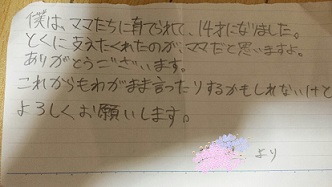 僕は、ママたちに育てられて、14才になりました。
とくに支えてくれたのが、ママだと思いますよ。
ありがとうございます。
これからもわがまま言ったりするかもしれないけど
よろしくお願いします。
より